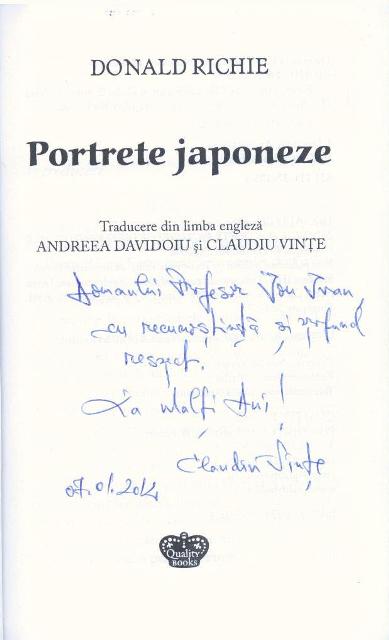 DONALD RICHIE
Portrete japoneze
Traducere din limba engleză
ANDREEA DAVIDOIU și CLAUDIU VINȚE
Domnului Profesor Ion Ivan,
cu recunoștință și profund
respect.
La Mulți Ani!
Claudiu Vințe
07.01.2012
Quality
BOOKS